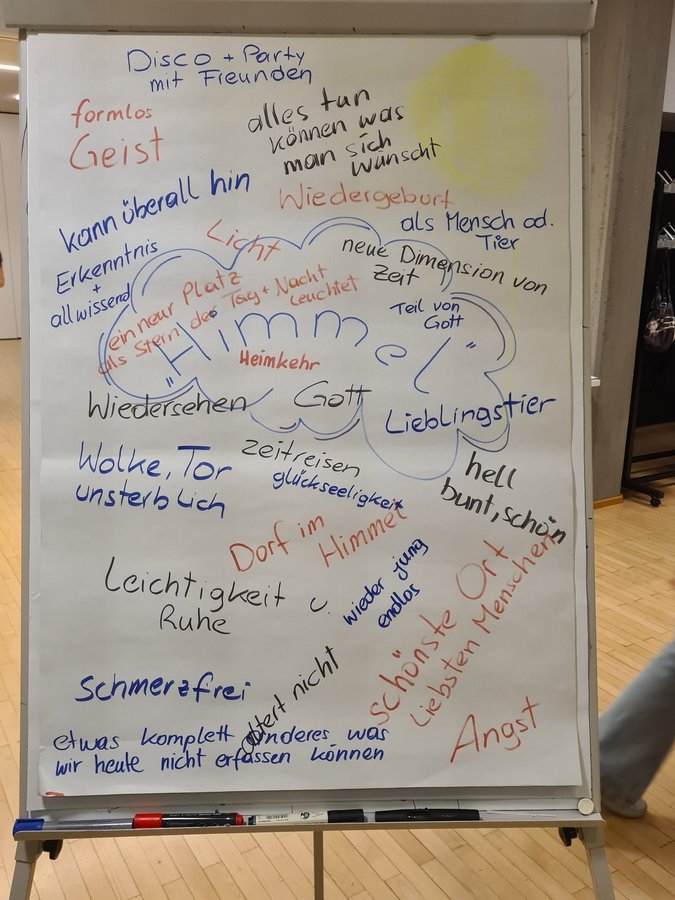 Disco + Party
mit Freunden
formlos
Geist
alles tun
können was
man sich
wünscht
kann überall hin
Wiedergeburt
als Mensch od.
Tier
Erkenntnis
+
allwissend
Licht
neue Dimension von
Zeit
ein neur Platz
als Stern der Tag + Nacht
leuchtet
Teil von
Gott
"Himmel"
Heimkehr
Wiedersehen
Gott
Lieblingstier
Wolke, Tor
unsterblich
Zeitreisen
glückseeligkeit
hell
bunt, schön
Dorf im
Himmel
Leichtigkeit u.
Ruhe
wieder jung
endlos
schönste Ort
liebsten Menschen
Schmerzfrei
nicht
Angst
etwas komplett anderes was
wir heute nicht erfassen können